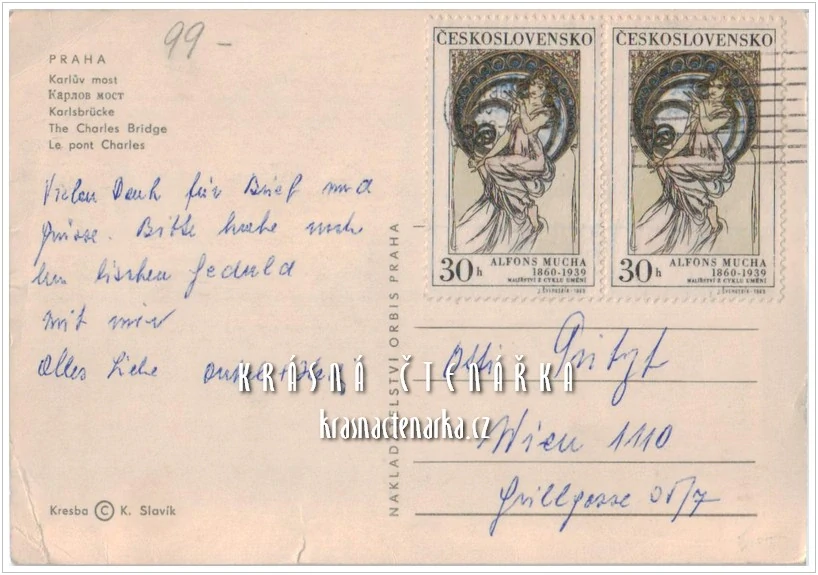 99-
PRAHA
Karlův most
Карлов мост
Karlsbrücke
The Charles Bridge
Le pont Charles
Vielen Dank für Brief und
Grüsse. Bitte habe noch
bisschen Geduld
mit mir
Alles Liebe
Kresba © K. Slavík
NAKLADATELSTVÍ ORBIS PRAHA
ČESKOSLOVENSKO
30h
ALFONS MUCHA
1860-1939
MALÍŘSTVÍ Z CYKLU UMĚNÍ
ČESKOSLOVENSKO
30h
ALFONS MUCHA
1860-1939
MALÍŘSTVÍ Z CYKLU UMĚNÍ
KRÁSNÁ ČTENÁŘKA
krasnactenarka.cz
Wien 1110
Grillgasse